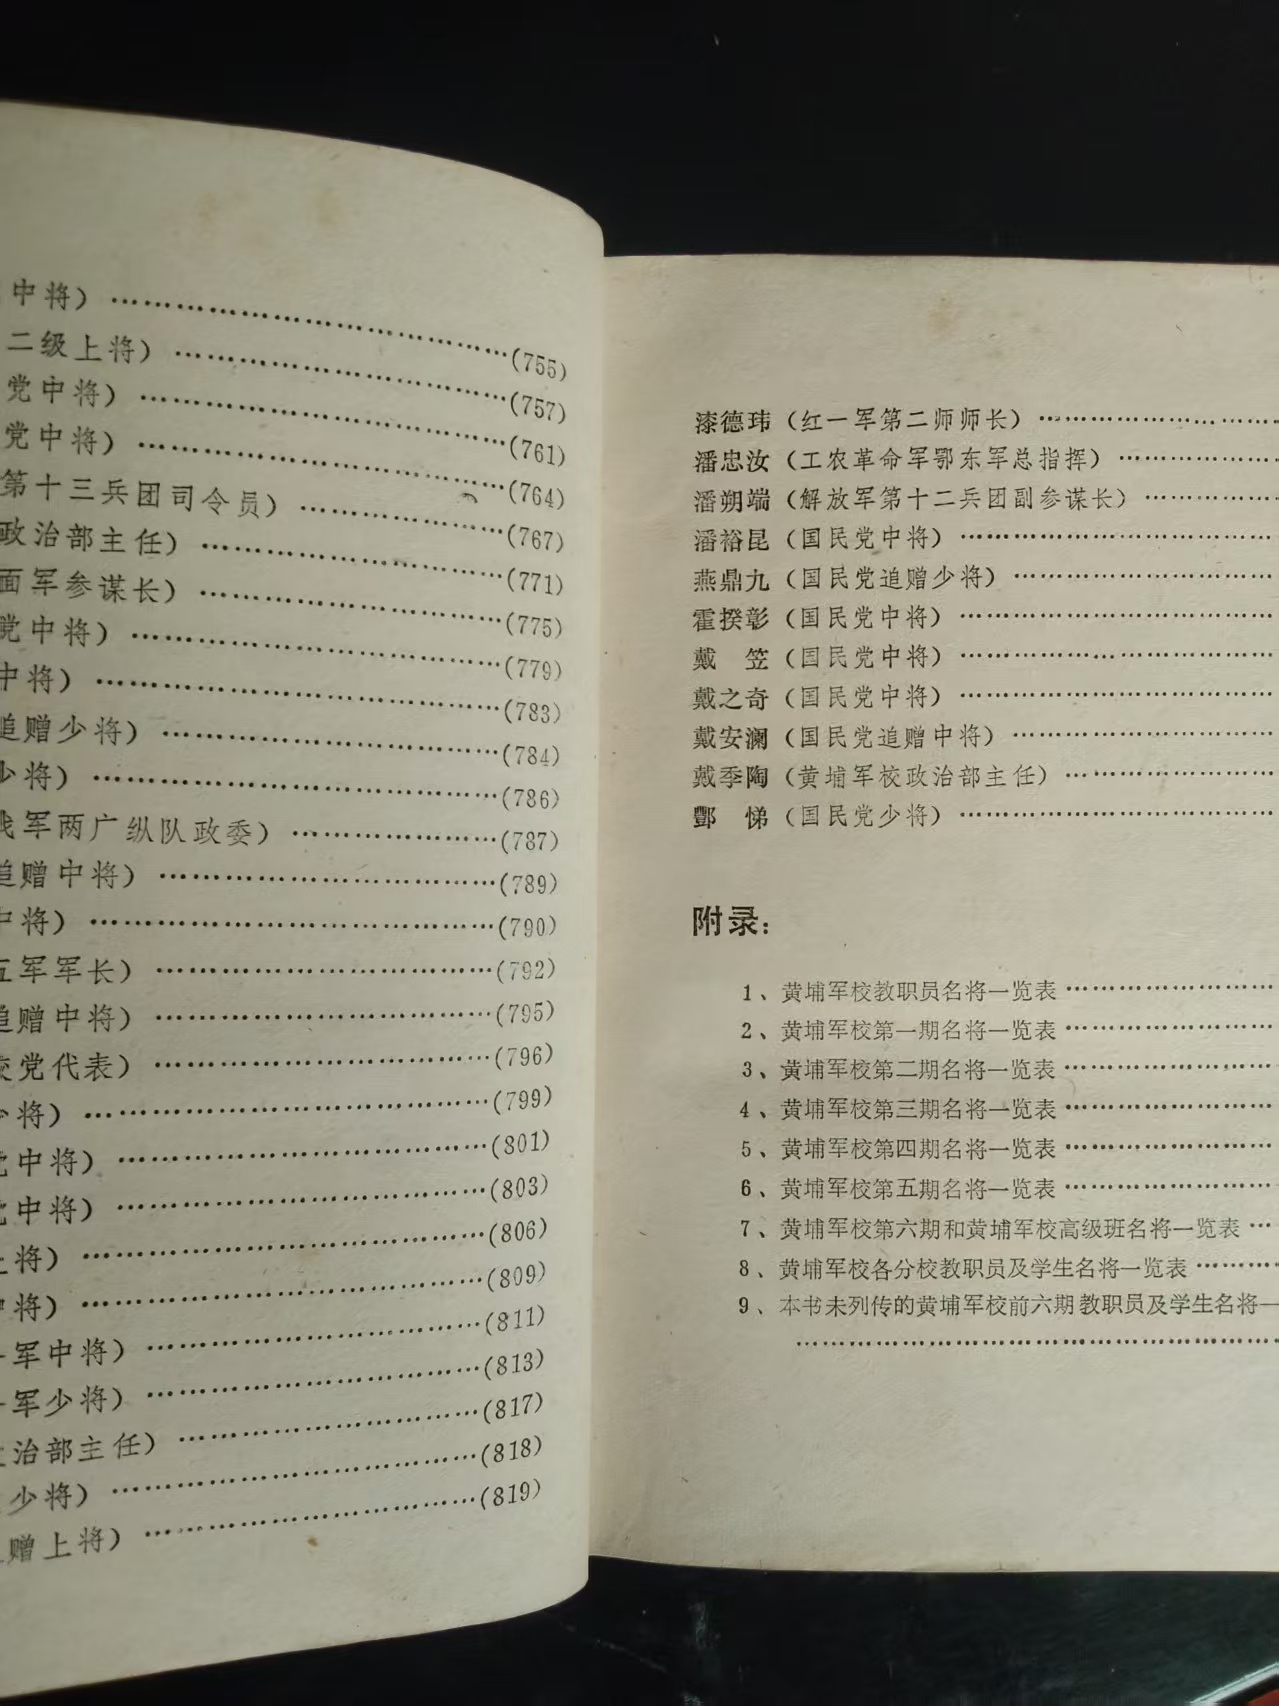 中将）…………(755)
二级上将）…………(757)
党中将）…………(761)
党中将）…………(764)
第十三兵团司令员）…………(767)
政治部主任）…………(771)
面军参谋长）…………(775)
党中将）…………(779)
中将）…………(783)
追赠少将）…………(784)
少将）…………(786)
军两广纵队政委）…………(787)
追赠中将）…………(789)
中将）…………(790)
五军军长）…………(792)
追赠中将）…………(795)
校党代表）…………(796)
少将）…………(799)
党中将）…………(801)
党中将）…………(803)
上将）…………(806)
中将）…………(809)
军中将）…………(811)
军少将）…………(813)
治部主任）…………(817)
少将）…………(818)
赠上将）…………(819)
漆德玮（红一军第二师师长）…………
潘忠汝（工农革命军鄂东军总指挥）…………
潘朔端（解放军第十二兵团副参谋长）…………
潘裕昆（国民党中将）…………
燕鼎九（国民党追赠少将）…………
霍揆彰（国民党中将）…………
戴　笠（国民党中将）…………
戴之奇（国民党中将）…………
戴安澜（国民党追赠中将）…………
戴季陶（黄埔军校政治部主任）…………
酆　悌（国民党少将）…………
附录：
1、黄埔军校教职员名将一览表…………
2、黄埔军校第一期名将一览表…………
3、黄埔军校第二期名将一览表…………
4、黄埔军校第三期名将一览表…………
5、黄埔军校第四期名将一览表…………
6、黄埔军校第五期名将一览表…………
7、黄埔军校第六期和黄埔军校高级班名将一览表……
8、黄埔军校各分校教职员及学生名将一览表…………
9、本书未列传的黄埔军校前六期教职员及学生名将一
…………